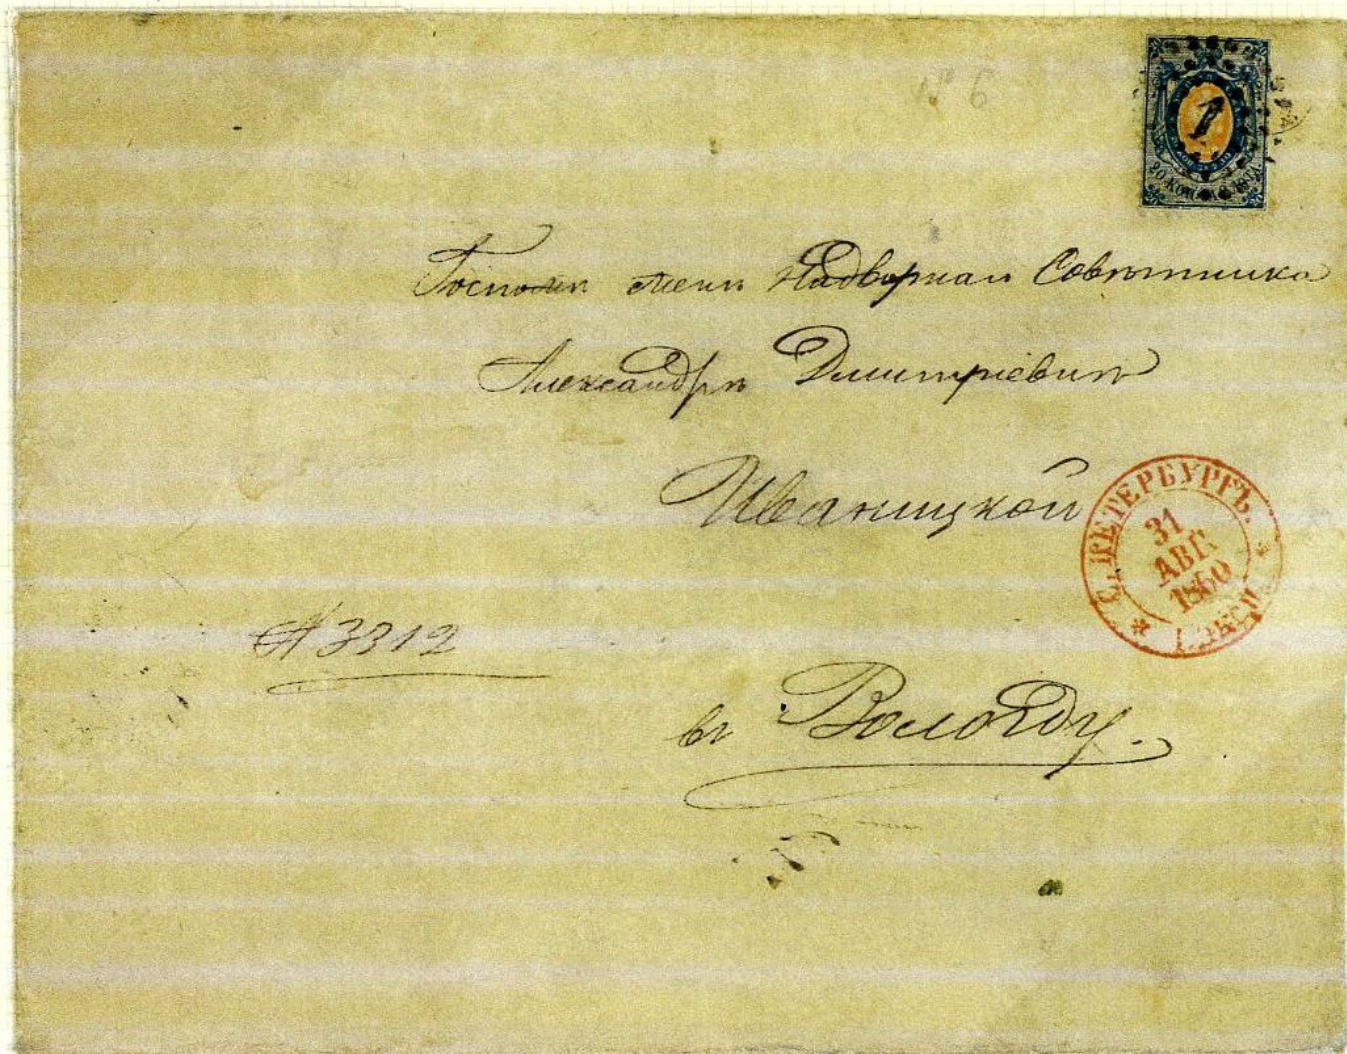 № 6
1
20 КОП.
Надворная Совѣтника
Александръ Дмитріевичъ
Иваницкой
С. ПЕТЕРБУРГЪ.
31
АВГ.
1860
№ 3312
въ Вологду.